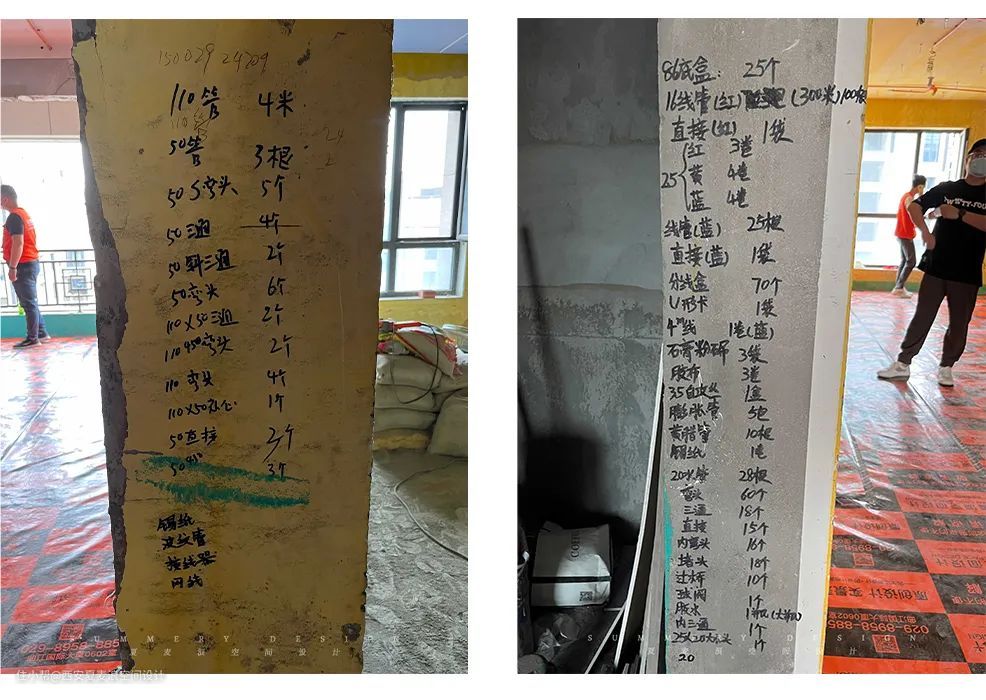 150029 24209
110管 4米
50管 3根
50S弯头 5个
50三通 4个
50斜三通 2个
50弯头 6个
110X50三通 2个
110 45°弯头 2个
110弯头 4个
110X50 1个
50直接
50 3个
锡纸
波纹管
接线器
网线
86底盒: 25个
16线管(红) (300米)100根
直接(红) 1袋
25 红 3卷
黄 4卷
蓝 4卷
线管(蓝) 25根
直接(蓝) 1袋
分线盒 70个
U形卡 1袋
4"线 1卷(蓝)
石膏粉 3袋
胶布 3卷
35自攻丝 1盒
膨胀管 5包
黄腊管 10根
锡纸 1卷
20水管 28根
弯头 60个
三通 18个
直接 15个
内弯头 16个
堵头 18个
过桥 10个
球阀 1个
胶水 1瓶(大瓶)
内三通 1个
25X20大小头 1个
20
原创设计 实景
029-8958-885
曲江国际大厦0602室
SUMMERY DESIGN
夏麦演空间设计
SUMMERY DESIGN
夏麦演空间设计
住小帮@西安夏麦演空间设计